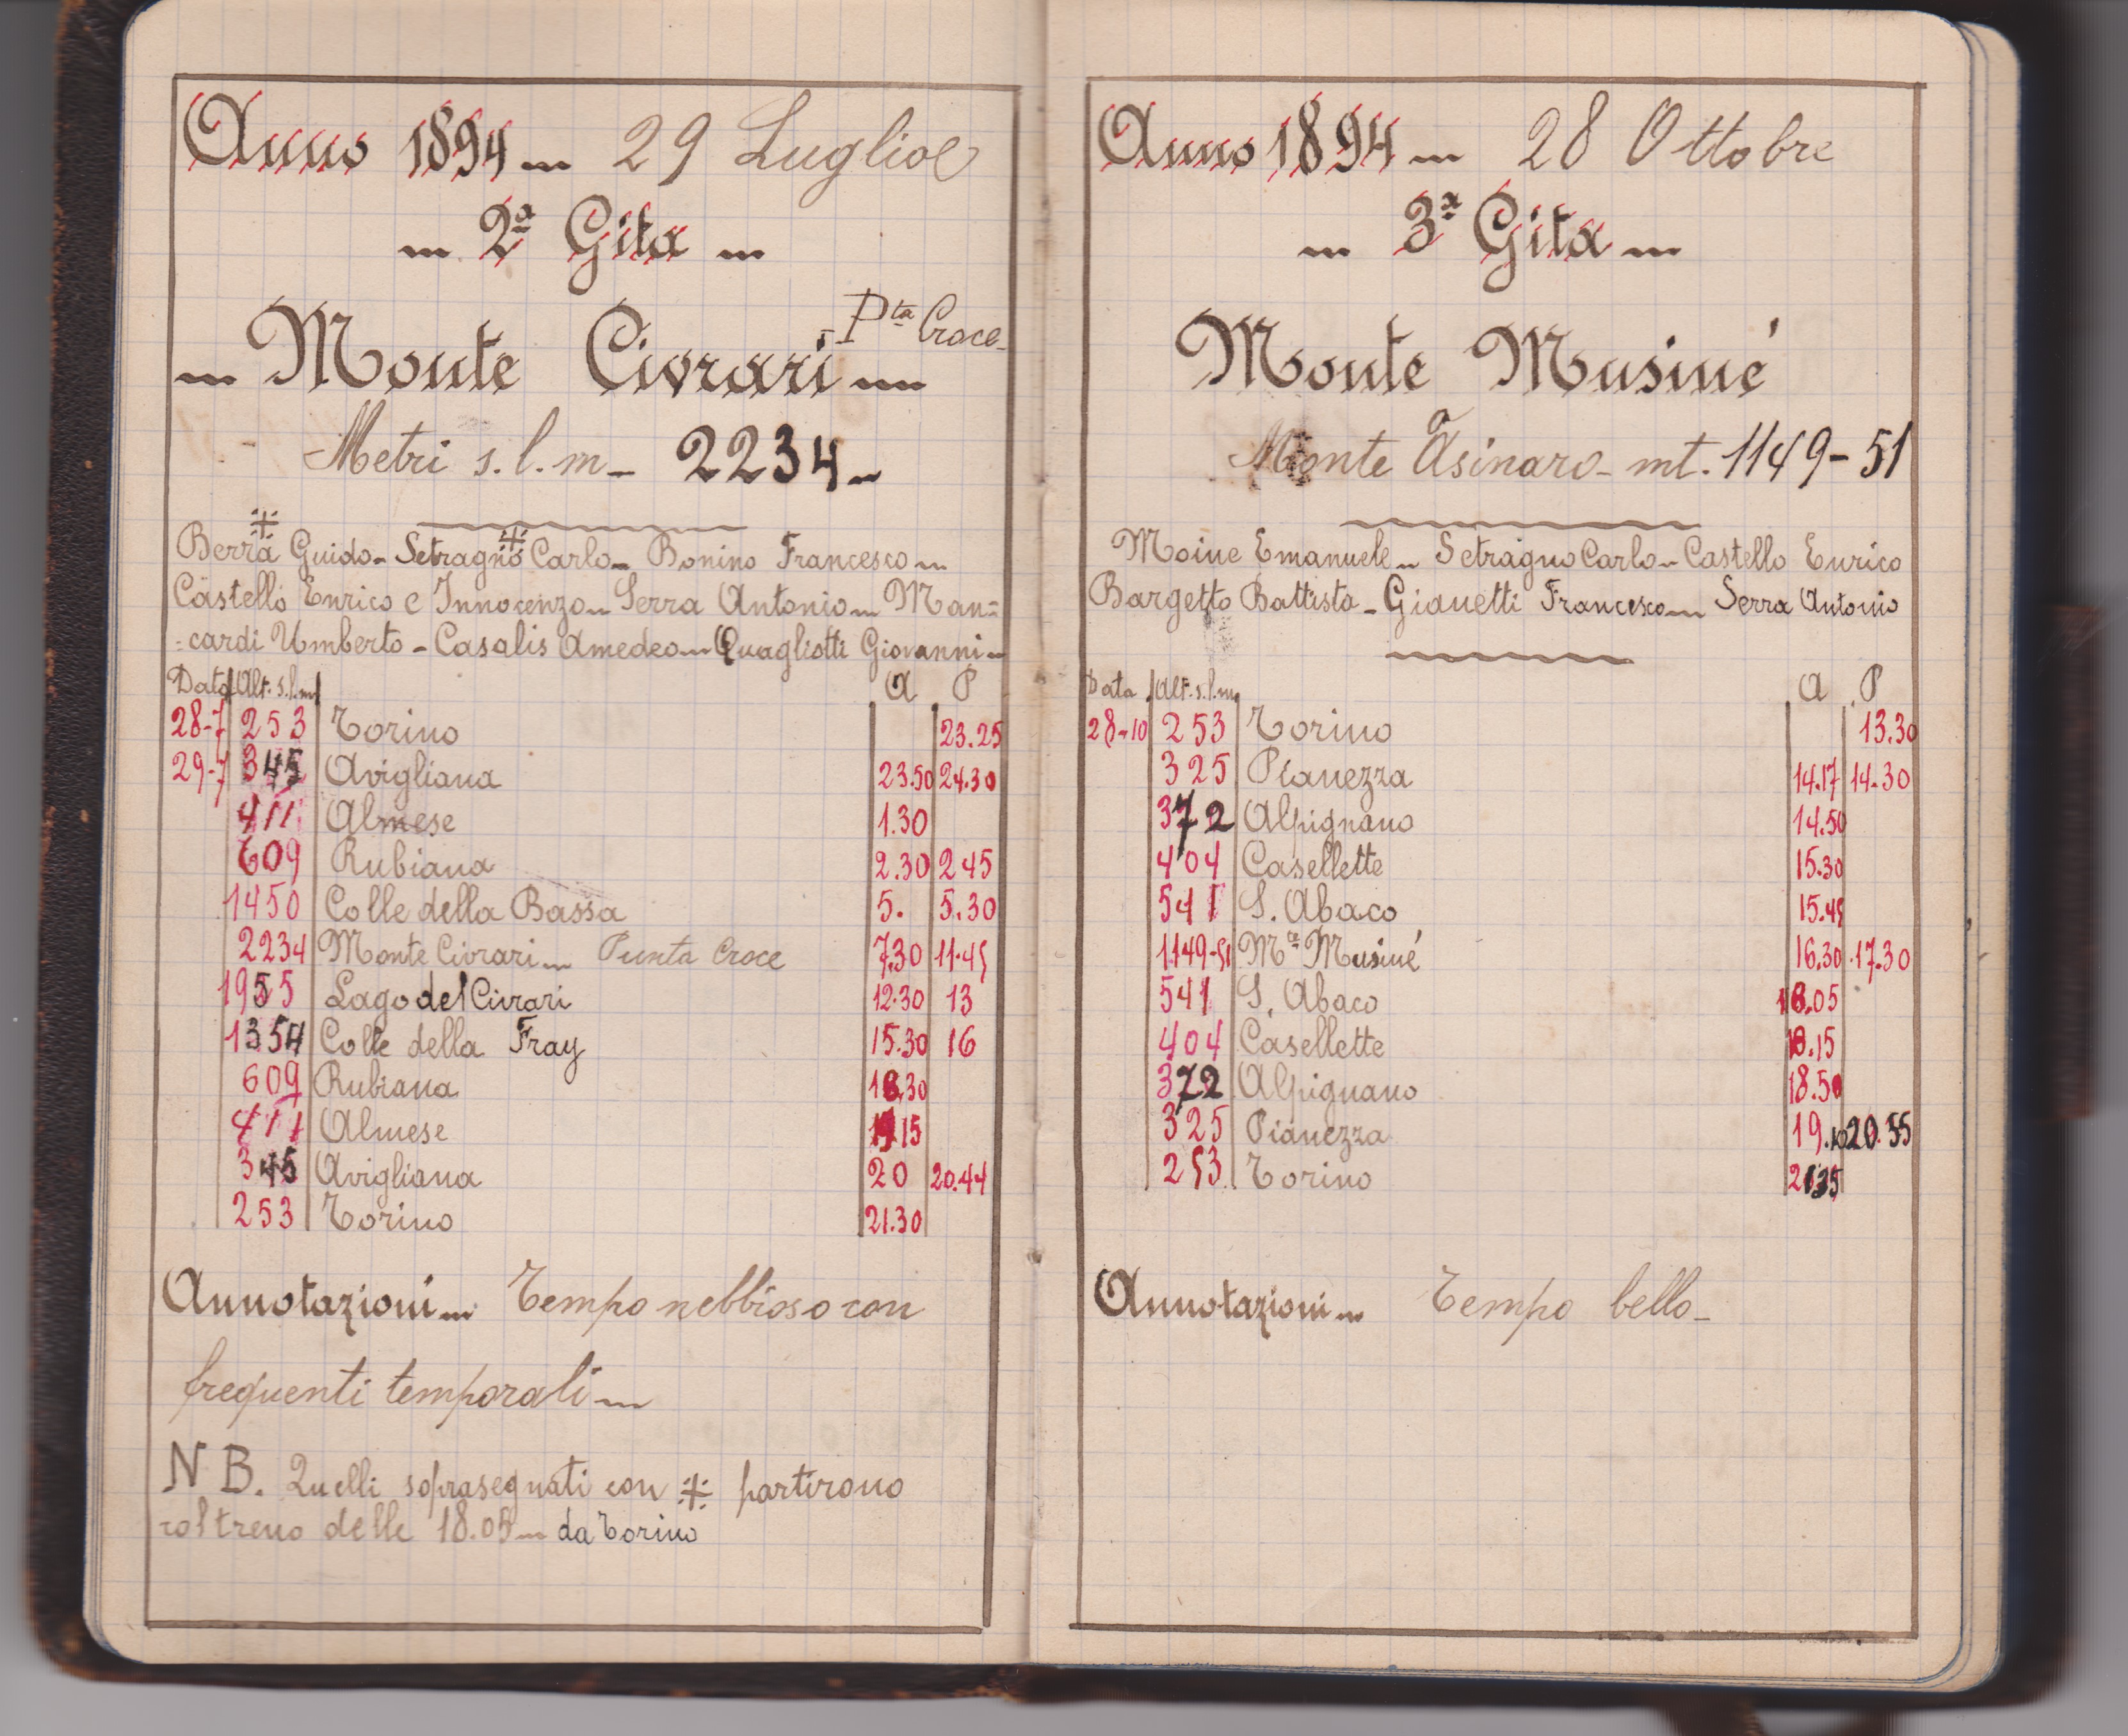 Anno 1894 - 29 Luglio
- 2ª Gita -
- Monte Civrari - Pta Croce -
Metri s.l.m - 2234 -
Berra Guido - Setragno Carlo - Bonino Francesco -
Castello Enrico e Innocenzo - Serra Antonio - Man=
=cardi Umberto - Casalis Amedeo - Quagliotti Giovanni -
Data Alt. s.l.m A P
28-7 253 Torino 23.25
29-7 345 Avigliana 23.50 24.30
411 Almese 1.30
609 Rubiana 2.30 2 45
1450 Colle della Bassa 5. 5.30
2234 Monte Civrari - Punta Croce 7.30 11.45
1955 Lago del Civrari 12.30 13
1354 Colle della Fray 15.30 16
609 Rubiana 18.30
411 Almese 19 15
345 Avigliana 20 20.44
253 Torino 21.30
Annotazioni - Tempo nebbioso con
frequenti temporali -
N B. Quelli soprasegnati con ⁜ partirono
col treno delle 18.05 - da Torino
Anno 1894 - 28 Ottobre
- 3ª Gita -
Monte Musiné
Monte Asinaro - mt. 1149-51
Moine Emanuele - Setragno Carlo - Castello Enrico
Bargetto Battista - Gianetti Francesco - Serra Antonio
Data Alt. s.l.m. A P
28-10 253 Torino 13.30
325 Pianezza 14.17 14.30
372 Alpignano 14.50
404 Casellette 15.30
541 S. Abaco 15.45
1149-51 Mte Musiné 16.30 17.30
541 S. Abaco 18.05
404 Casellette 18.15
372 Alpignano 18.50
325 Pianezza 19.10 20.55
253 Torino 21 35
Annotazioni - Tempo bello -